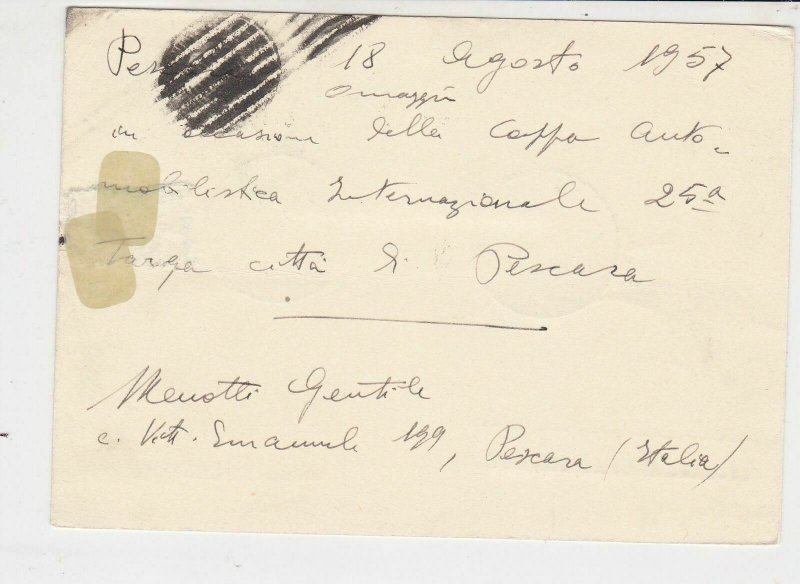 Pescara 18 Agosto 1957
Omaggi
in occasione della Coppa Auto-
mobilistica Internazionale 25a
Targa città di Pescara
Menotti Gentile
c. Vitt. Emanuele 199, Pescara (Italia)